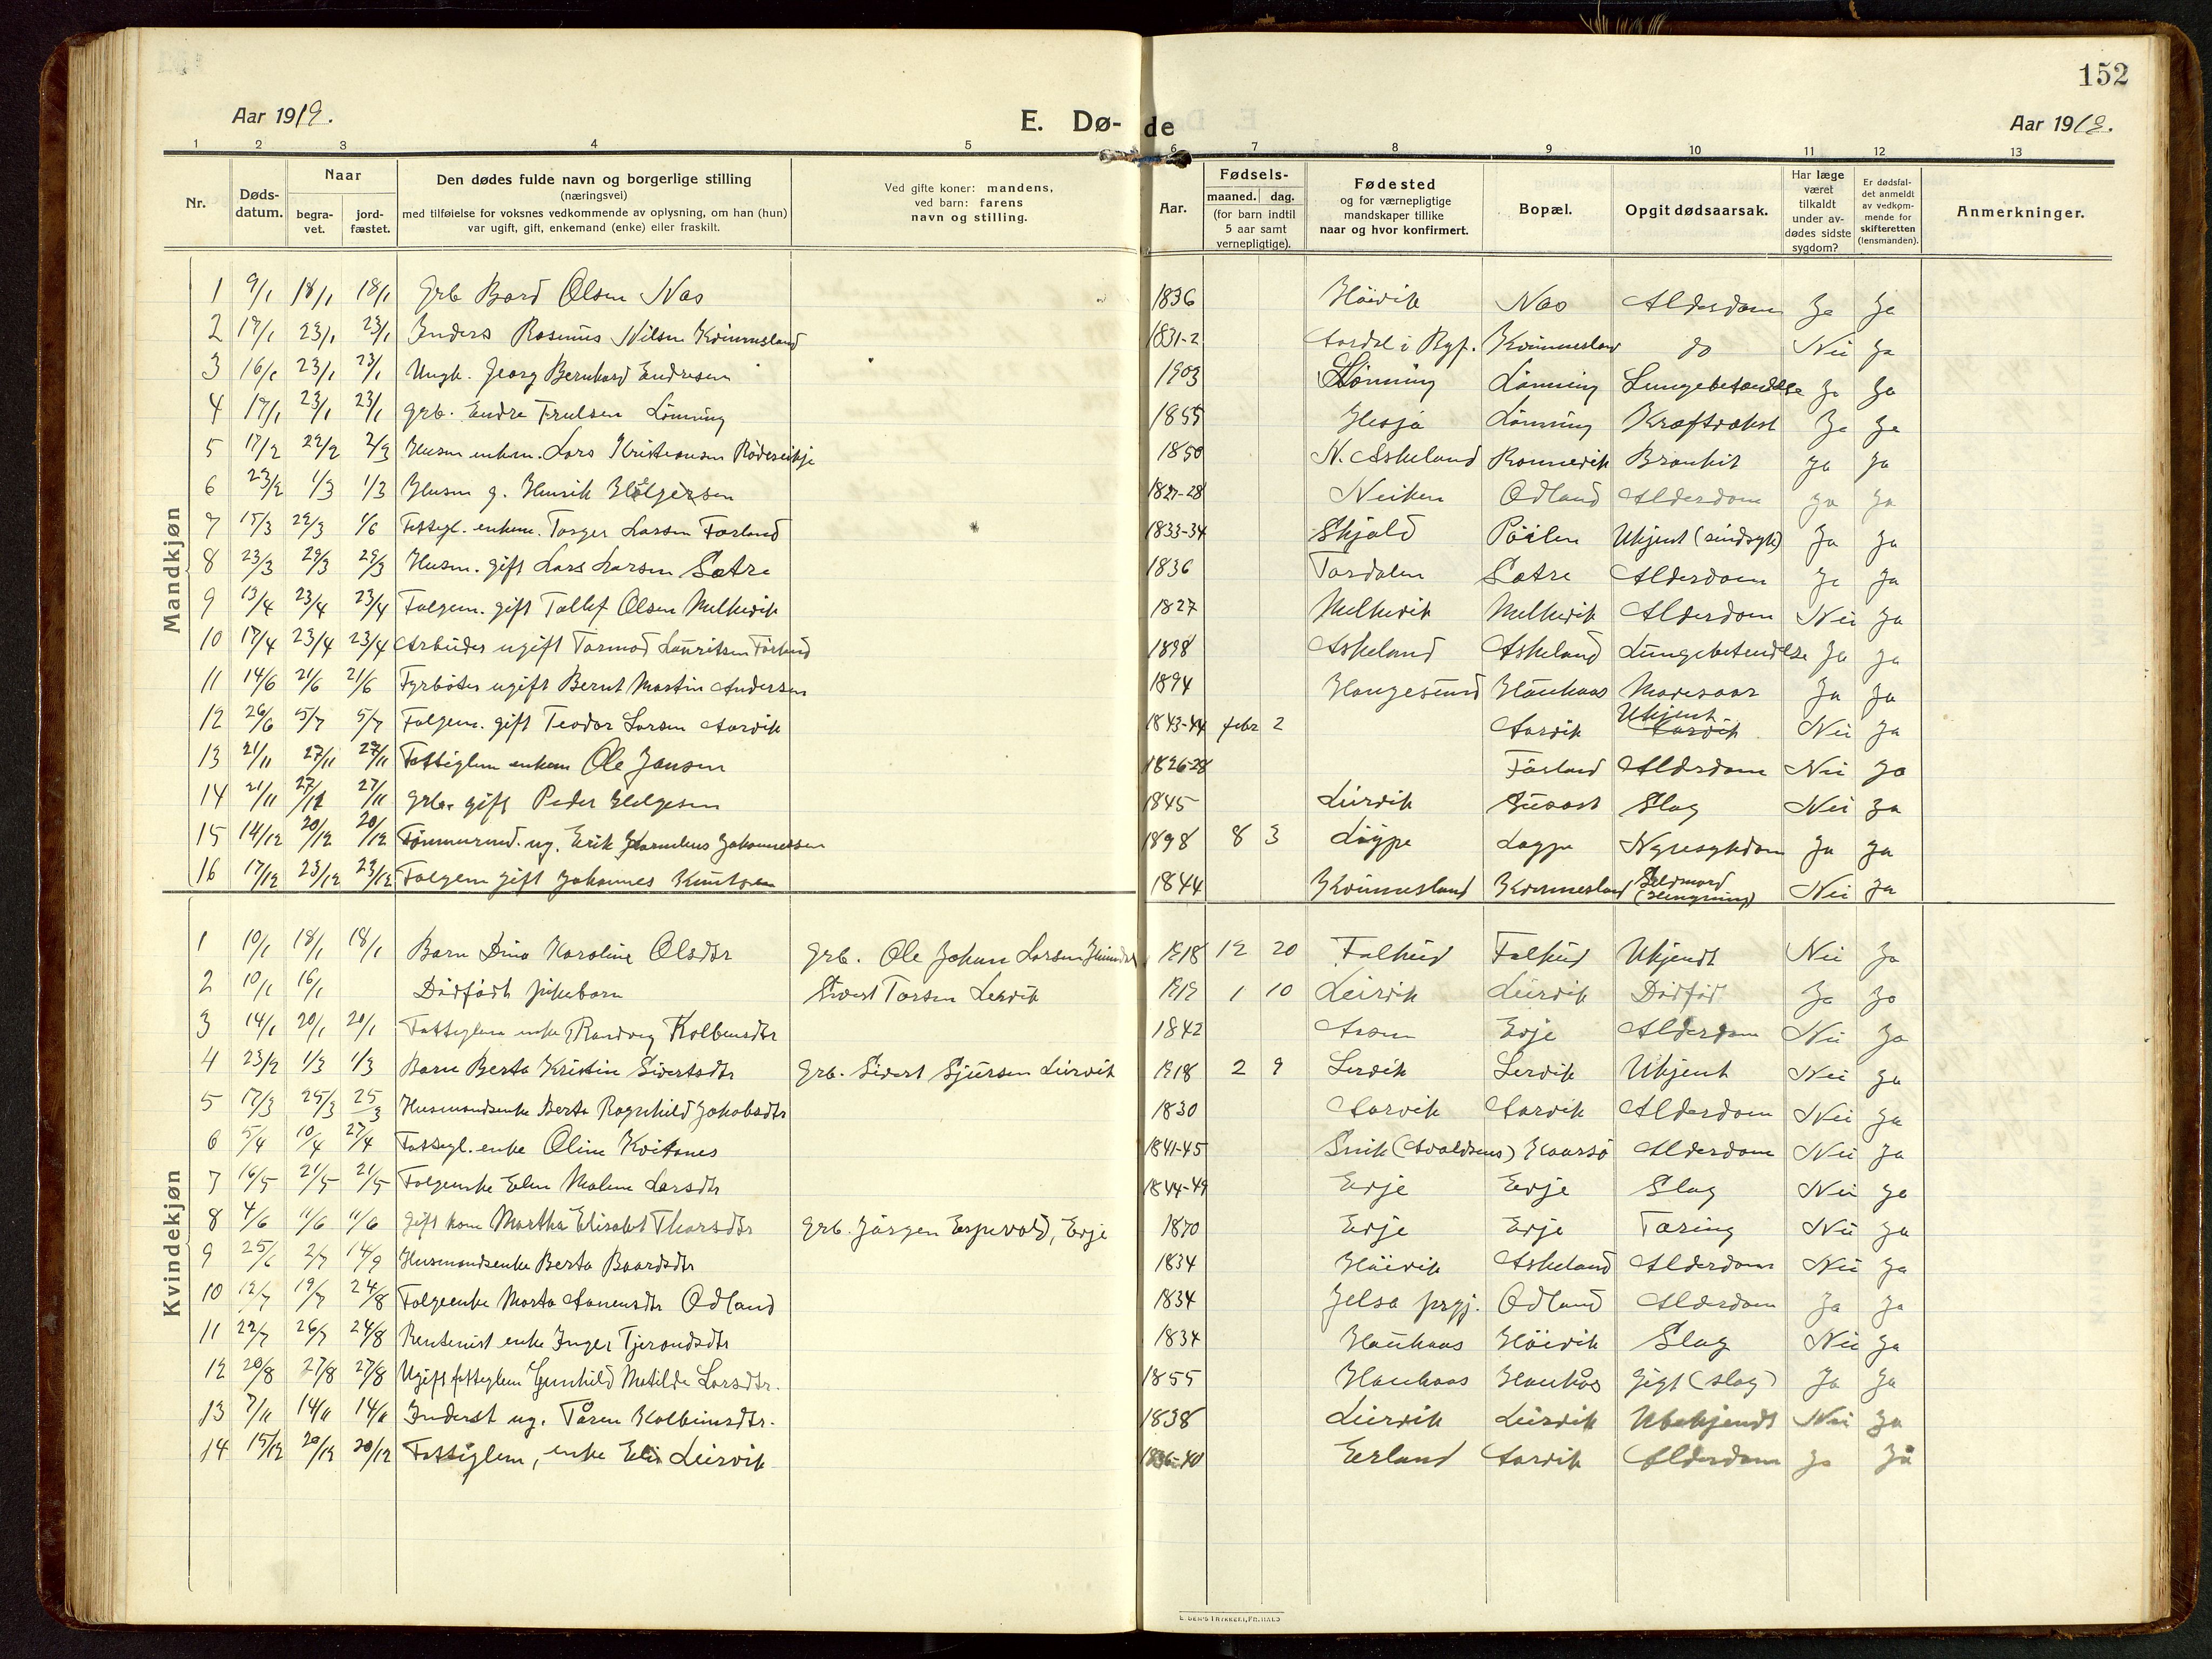 152
Aar 1919.
E. Dø-de
Aar 1919.
1 2 3 4 5 6 7 8 9 10 11 12 13
Nr.
Døds-datum.
Naar
begra-vet.
jord-fæstet.
Den dødes fulde navn og borgerlige stilling
(næringsvei)
med tilføielse for voksnes vedkommende av oplysning, om han (hun)
var ugift, gift, enkemand (enke) eller fraskilt.
Ved gifte koner: mandens,
ved barn: farens
navn og stilling.
Aar.
Fødsels-
maaned. dag.
(for barn indtil
5 aar samt
vernepligtige).
Fødested
og for værnepligtige
mandskaper tillike
naar og hvor konfirmert.
Bopæl.
Opgit dødsaarsak.
Har læge
været
tilkaldt
under av-
dødes sidste
sygdom?
Er dødsfal-
det anmeldt
av vedkom-
mende for
skifteretten
(lensmanden).
Anmerkninger.
Mandkjøn
1 9/1 18/1 18/1 Grb Bard Olsen Nas 1836 Höivik Nas Alderdom Ja Ja
2 17/1 23/1 23/1 Inders Rasmus Nilsen Kvinnesland 1831-2 Aardal i Ryf. Kvinnesland do Nei Ja
3 16/1 23/1 23/1 Ungk. Georg Bernhard Endresen 1903 Lönning Lönning Lungebetændelse Ja Ja
4 17/1 23/1 23/1 Grb. Endre Trulsen Lönning 1855 Hesja Lönning Kræftvækst Ja Ja
5 17/2 22/2 2/3 Husm enkem. Lars Kristiansen 1850 N. Askeland Ronnevik Bronkit Ja Ja
6 23/2 1/3 1/3 Husm g. Henrik Helgesen 1827-28 Neiken Odland Alderdom Ja Ja
7 15/3 22/3 1/6 Fattigl. enkem. Torger Larsen Førland 1833-34 Skjold Ukjent (sindsyk) Ja Ja
8 23/3 29/3 29/3 Husm. gift Lars Larsen Sætre 1836 Tordalen Sætre Alderdom Ja Ja
9 13/4 23/4 23/4 Folgem. gift Tollef Olsen Melkevik 1827 Melkevik Melkevik Alderdom Nei Ja
10 17/4 23/4 23/4 Arbeider ugift Tormod Lauritsen Förland 1898 Askeland Askeland Lungebetendelse Ja Ja
11 14/6 21/6 21/6 Fyrböter ugift Bernt Martin Andersen 1894 Haugesund Haukaas Mavesaar Ja Ja
12 26/6 5/7 5/7 Folgem. gift Teodor Larsen Aarvik 1843-44 febr 2 Aarvik Ukjent Nei Ja
13 21/11 27/11 27/11 Fattiglem enkem Ole Jansen 1826-28 Förland Alderdom Nei Ja
14 21/11 27/11 27/11 Grbr. gift Peder Helgesen 1845 Leirvik Slag Nei Ja
15 14/12 20/12 20/12 Tömmermd. ug. Erik Kornelius Johannessen 1898 8 3 Löype Nyresykdom Ja Ja
16 17/12 23/12 23/12 Folgem gift Johannes Knutsen 1844 Kvinnesland Kvinnesland Selvmord (hengning) Nei Ja
Kvindekjøn
1 10/1 18/1 18/1 Barn Dina Karoline Olsdtr Grb. Ole Johan Larsen 1918 12 20 Falkeid Falkeid Ukjendt Nei Ja
2 10/1 16/1 Dödfödt pikebarn Sivert Larsen Lervik 1919 1 10 Leirvik Leirvik Dödföd Ja Ja
3 14/1 20/1 20/1 Fattiglem enke Randveig Kolbeinsdtr 1842 Evje Alderdom Nei Ja
4 23/2 1/3 1/3 Barn Berta Kristine Sivertsdtr Grb. Sivert Sjursen Leirvik 1918 2 9 Lervik Lervik Ukjent Nei Ja
5 17/3 25/3 25/3 Husmandsenke Berta Ragnhild Jakobsdtr 1830 Aarvik Aarvik Alderdom Nei Ja
6 5/4 10/4 27/4 Fattigl. enke Oline Kvitanes 1841-45 Snik (Avaldsnes) Alderdom Nei Ja
7 16/5 21/5 21/5 Folgenke Elen Malene Larsdtr 1844-49 Evje Evje Slag Nei Ja
8 4/6 11/6 11/6 Gift kone Martha Elisabet Thorsdtr Grb. Jörgen Espevold, Evje 1870 Evje Evje Tæring Nei Ja
9 25/6 2/7 14/9 Husmandsenke Berta Baardsdtr 1834 Höivik Askeland Alderdom Nei Ja
10 12/7 19/7 24/8 Folgeenke Marta Aanensdtr Odland 1834 Jelsa prgj. Odland Alderdom Ja Ja
11 22/7 26/7 24/8 Rentenist enke Inger Tjerandsdtr 1834 Haukaas Höivik Slag Nei Ja
12 20/8 27/8 27/8 Ugift fattiglem Gunhild Matilde Larsdtr. 1855 Haukaas Haukås Gigt (slag) Ja Ja
13 7/11 14/11 14/11 Inderst ug. Tören Kolbeinsdtr. 1838 Leirvik Leirvik Ubekjendt Nei Ja
14 15/12 20/12 20/12 Fattiglem, enke Elis Leirvik 1836-40 Erland Aarvik Alderdom Ja Ja